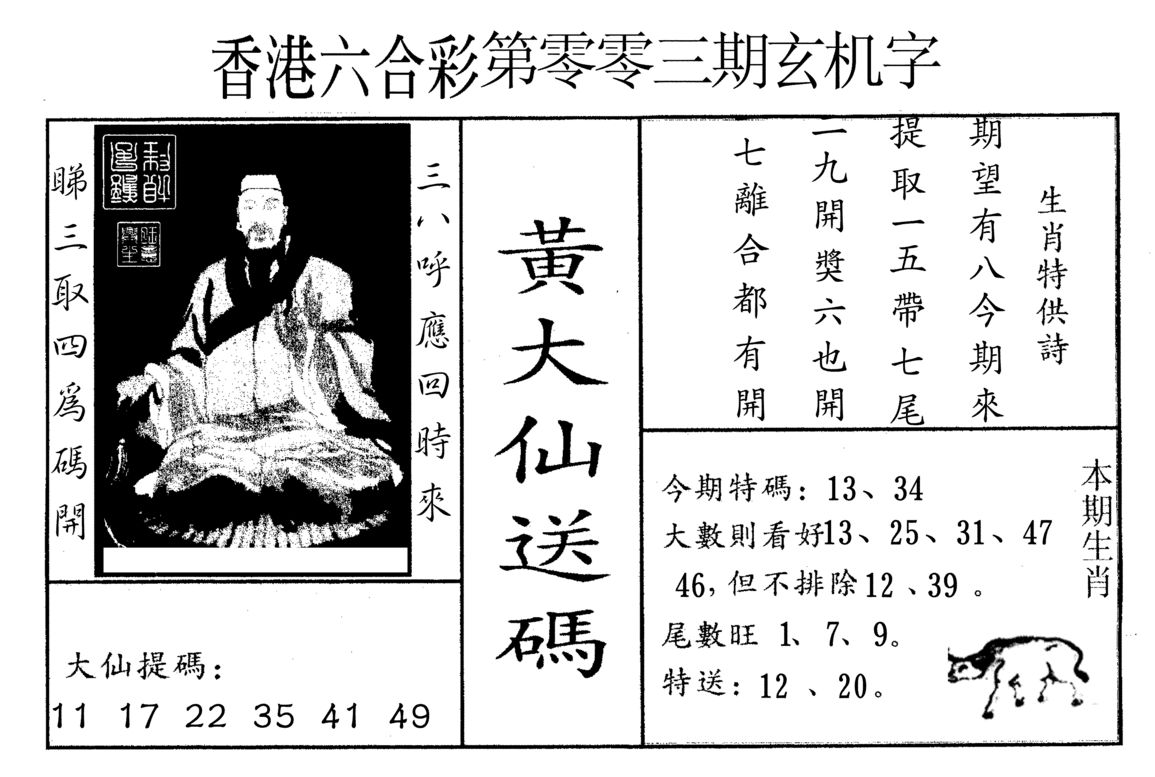 香港六合彩第零零三期玄机字
三八呼應回時來
睇三取四爲碼開
黃大仙送碼
生肖特供詩
期望有八今期來
提取一五帶七尾
二九開獎六也開
七離合都有開
大仙提碼：
11 17 22 35 41 49
今期特碼：13、34
大數則看好13、25、31、47
46，但不排除12、39。
尾數旺 1、7、9。
特送：12、20。
本期生肖